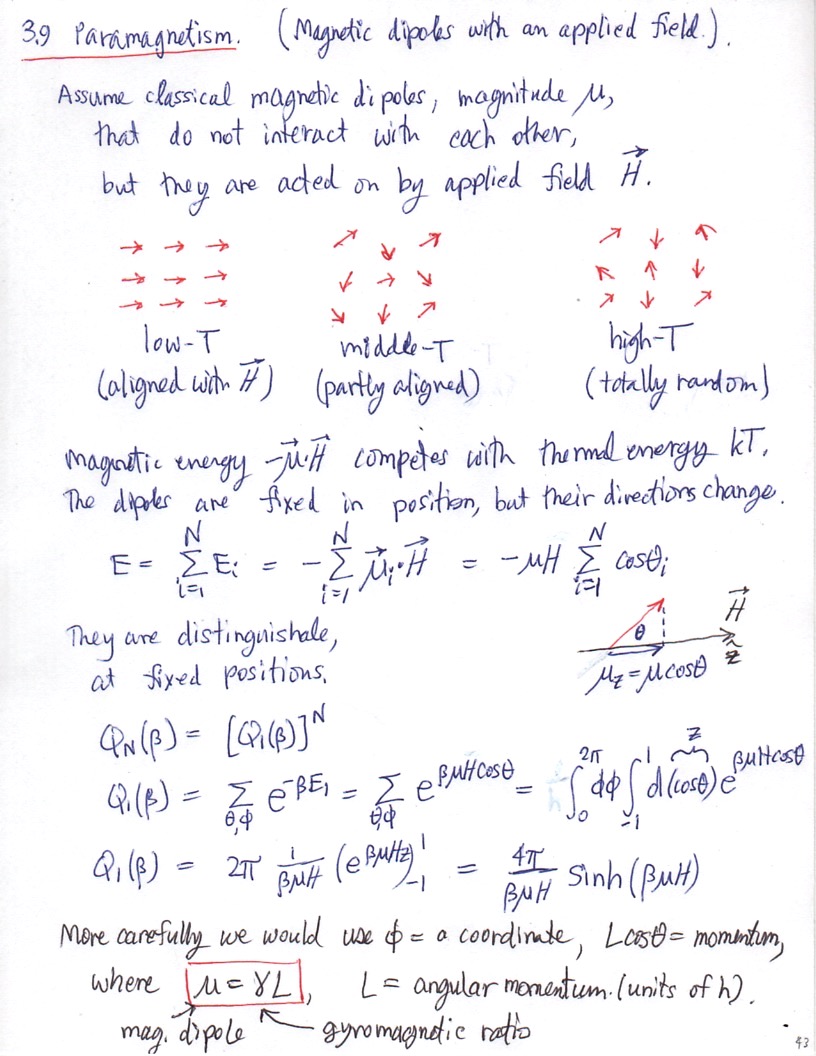 3.9 Paramagnetism. (Magnetic dipoles with an applied field.).
Assume classical magnetic dipoles, magnitude μ,
that do not interact with each other,
but they are acted on by applied field H⃗.
low-T middle-T high-T
(aligned with H⃗) (partly aligned) (totally random)
Magnetic energy -μ⃗·H⃗ competes with thermal energy kT.
The dipoles are fixed in position, but their directions change.
E = Σ_{i=1}^{N} E_i = -Σ_{i=1}^{N} μ⃗_i·H⃗ = -μH Σ_{i=1}^{N} cosθ_i
They are distinguishale,
at fixed positions.
θ H⃗ ẑ
μ_z = μcosθ
Q_N(β) = [Q_1(β)]^N
Q_1(β) = Σ_{θ,φ} e^{-βE_1} = Σ_{θ,φ} e^{βμHcosθ} = ∫_0^{2π} dφ ∫_{-1}^{1} d(cosθ) e^{βμHcosθ}
z
Q_1(β) = 2π 1/βμH (e^{βμHz})_{-1}^{1} = 4π/βμH sinh(βμH)
More carefully we would use φ = a coordinate, Lcosθ = momentum,
where μ = γL, L = angular momentum. (units of h).
mag. dipole gyromagnetic ratio
43